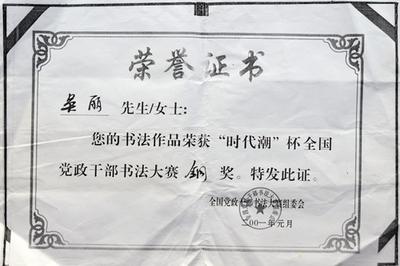 荣誉证书
吴丽 先生/女士:
您的书法作品荣获“时代潮”杯全国
党政干部书法大赛 铜 奖。特发此证。
全国党政干部书法大赛组委会
二00一年元月